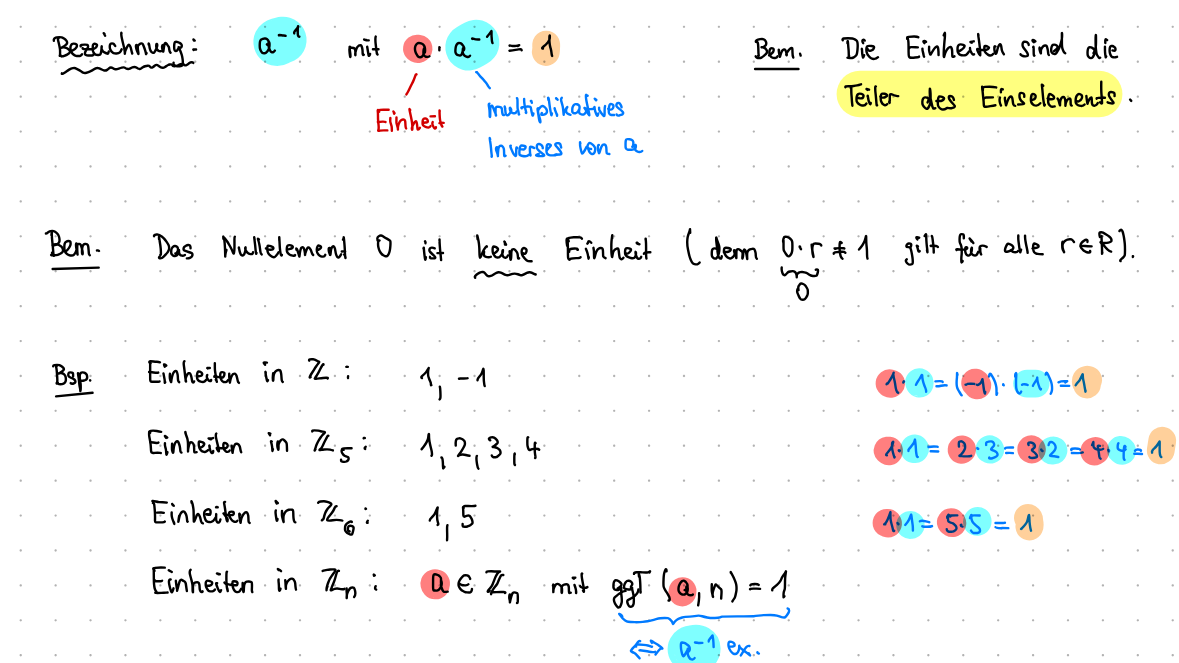 Bezeichnung: a⁻¹ mit a · a⁻¹ = 1
Einheit
multiplikatives
Inverses von a
Bem. Die Einheiten sind die
Teiler des Einselements.
Bem. Das Nullelement 0 ist keine Einheit (denn 0·r ≠ 1 gilt für alle r ∈ R).
0
Bsp. Einheiten in ℤ: 1, -1 1·1 = (-1)·(-1) = 1
Einheiten in ℤ₅: 1, 2, 3, 4 1·1 = 2·3 = 3·2 = 4·4 = 1
Einheiten in ℤ₆: 1, 5 1·1 = 5·5 = 1
Einheiten in ℤₙ: a ∈ ℤₙ mit ggT(a, n) = 1
⇔ a⁻¹ ex.